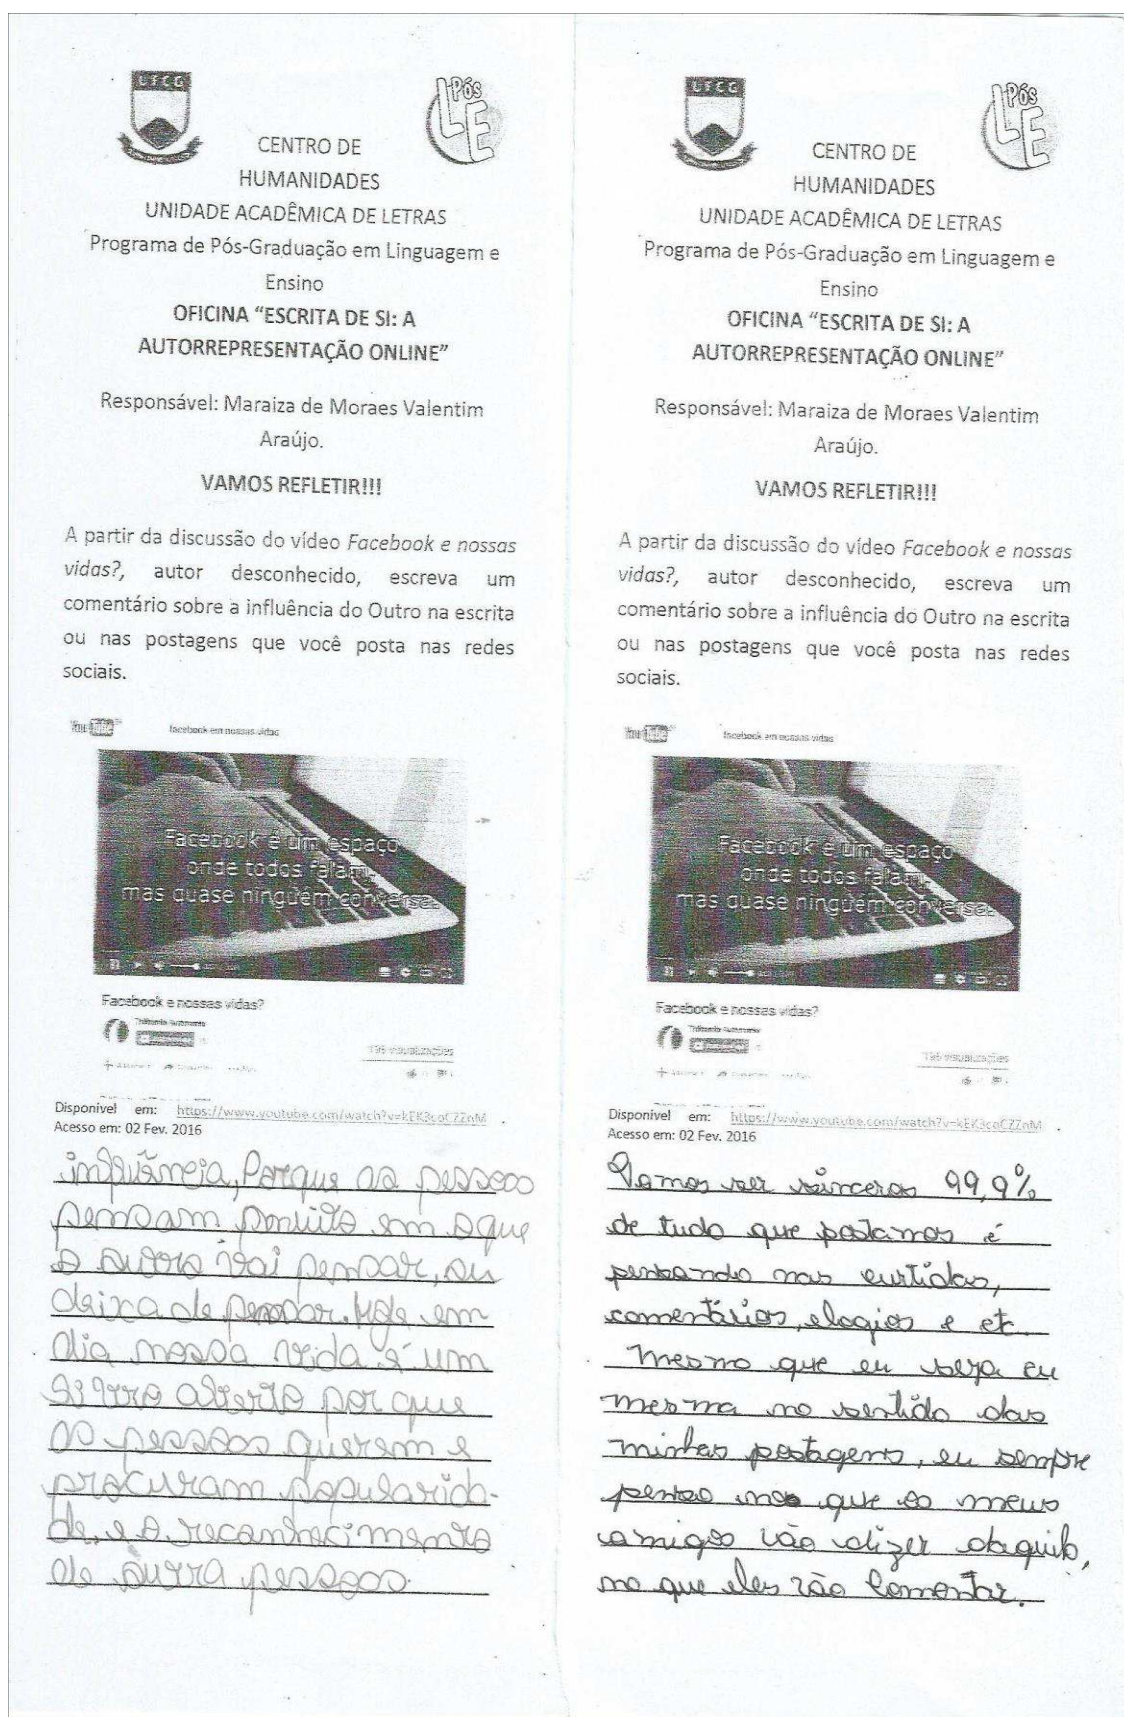 UFCG
Pós
LE
CENTRO DE
HUMANIDADES
UNIDADE ACADÊMICA DE LETRAS
Programa de Pós-Graduação em Linguagem e
Ensino
OFICINA “ESCRITA DE SI: A
AUTORREPRESENTAÇÃO ONLINE”
Responsável: Maraiza de Moraes Valentim
Araújo.
VAMOS REFLETIR!!!
A partir da discussão do vídeo Facebook e nossas
vidas?, autor desconhecido, escreva um
comentário sobre a influência do Outro na escrita
ou nas postagens que você posta nas redes
sociais.
YouTube facebook em nossas vidas
Facebook é um espaço
onde todos falam,
mas quase ninguém conversa.
Facebook e nossas vidas?
196 visualizações
Disponível em: https://www.youtube.com/watch?v=kEK3coCZZnM
Acesso em: 02 Fev. 2016
influência, Porque as pessoas
pensam muito em o que
o outro vai pensar, ou
deixa de pensar. Hoje em
dia nossa vida é um
livro aberto por que
as pessoas querem e
procuram popularida-
de, e o reconhecimento
de outra pessoas.
UFCG
Pós
LE
CENTRO DE
HUMANIDADES
UNIDADE ACADÊMICA DE LETRAS
Programa de Pós-Graduação em Linguagem e
Ensino
OFICINA “ESCRITA DE SI: A
AUTORREPRESENTAÇÃO ONLINE”
Responsável: Maraiza de Moraes Valentim
Araújo.
VAMOS REFLETIR!!!
A partir da discussão do vídeo Facebook e nossas
vidas?, autor desconhecido, escreva um
comentário sobre a influência do Outro na escrita
ou nas postagens que você posta nas redes
sociais.
YouTube facebook em nossas vidas
Facebook é um espaço
onde todos falam,
mas quase ninguém conversa.
Facebook e nossas vidas?
196 visualizações
Disponível em: https://www.youtube.com/watch?v=kEK3coCZZnM
Acesso em: 02 Fev. 2016
Vamos ser sinceros 99,9%
de tudo que postamos é
pensando nas curtidas,
comentários, elogios e etc.
Mesmo que eu seja eu
mesma no sentido das
minhas postagens, eu sempre
penso no que os meus
amigos vão dizer daquilo,
no que eles vão comentar.